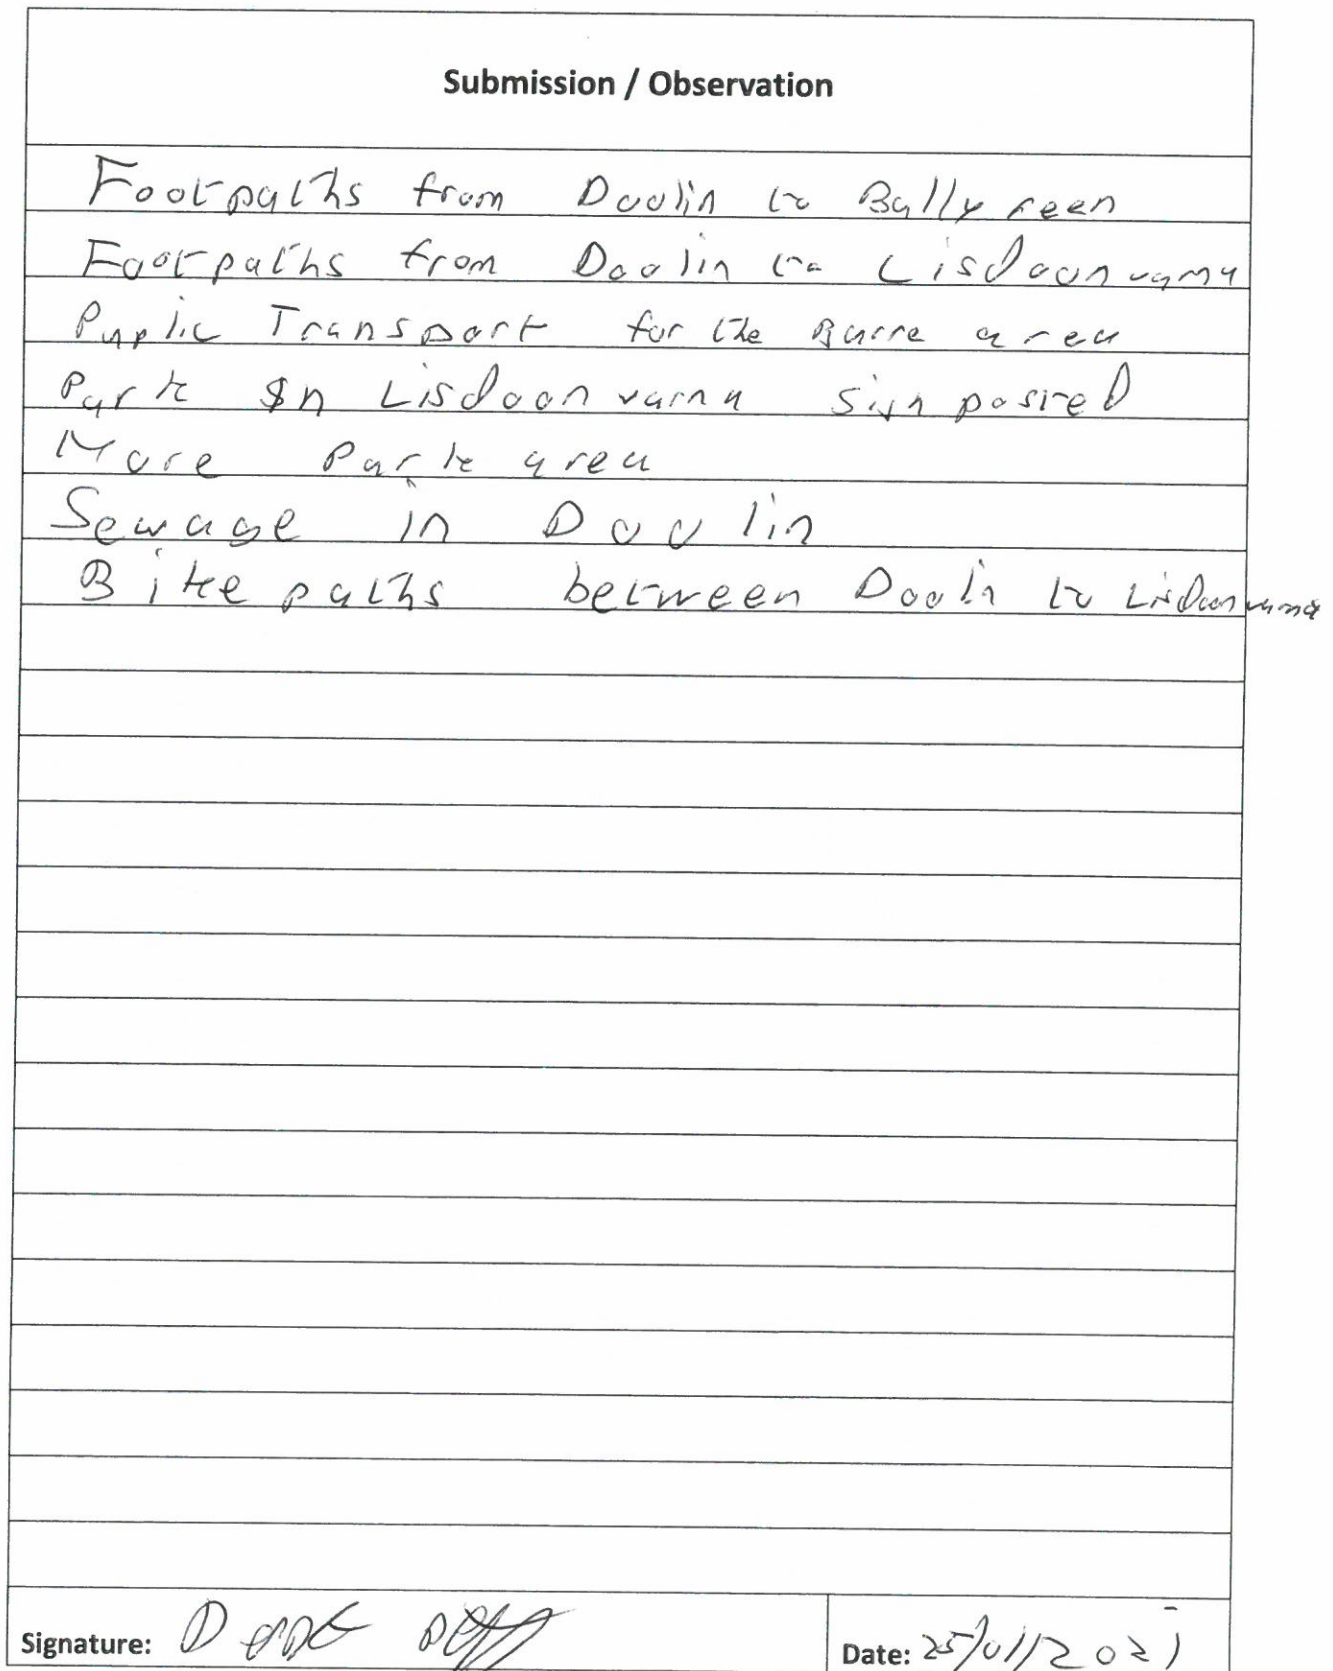 Submission / Observation
Footpaths from Doolin to Ballyreen
Footpaths from Doolin to Lisdoonvarna
Puplic Transport for the Burre area
Park in Lisdoonvarna Sign posted
More Park area
Sewage in Doolin
Bike paths between Doolin to Lisdoonvarna
Signature:
Date: 25/01/2021